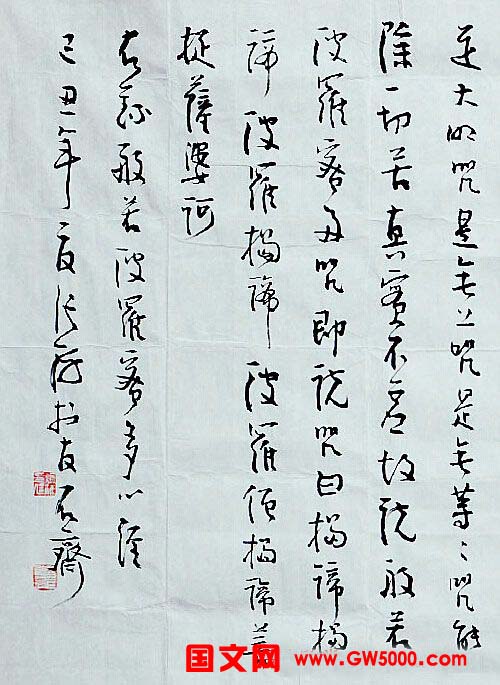 是大明咒是无上咒是无等々咒能
除一切苦真实不虚故说般若
波羅蜜多咒即说咒曰揭谛揭
谛波羅揭谛波羅僧揭谛菩
提薩婆訶
右錄般若波羅蜜多心经
己丑年夏於
石齋
国文网
www.GW5000.com